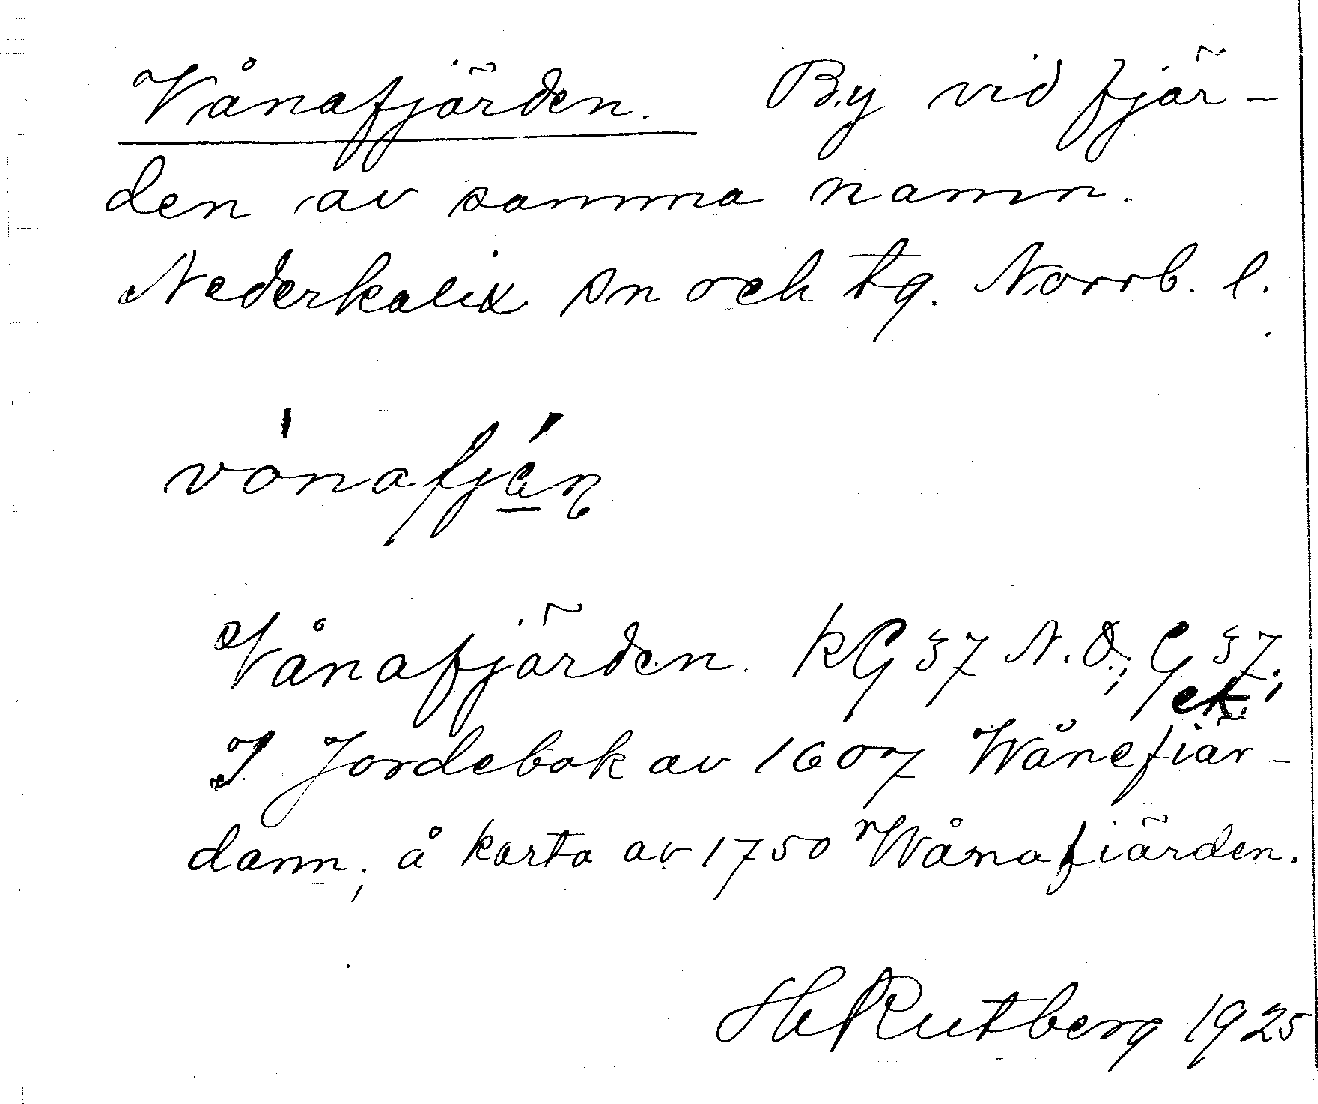 Vånafjärden. By vid fjär-
den av samma namn.
Nederkalix sn och tg. Norrb. l.
vånafjän
Vånafjärden. kG 37 N.O.; G 37;
ek.
I Jordebok av 1607 Wånefiär-
dann; å karta av 1750 Wånafiärden.
H Rutberg 1925